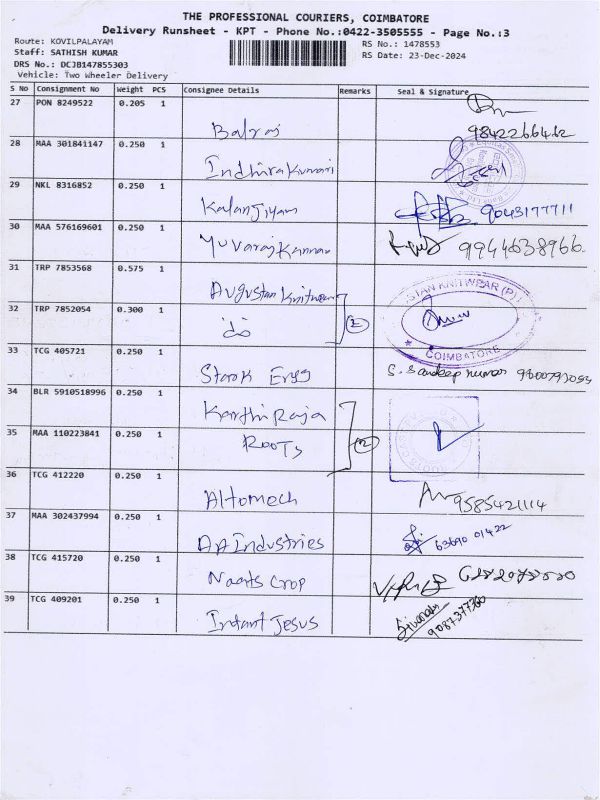 THE PROFESSIONAL COURIERS, COIMBATORE
Delivery Runsheet - KPT - Phone No.:0422-3505555 - Page No.:3
Route: KOVILPALAYAM
RS No.: 1478553
Staff: SATHISH KUMAR
RS Date: 23-Dec-2024
DRS No.: DCJB147855303
Vehicle: Two Wheeler Delivery
S No Consignment No Weight PCS Consignee Details Remarks Seal & Signature
27 PON 8249522 0.205 1
Balraj 9842266462
28 MAA 301841147 0.250 1
Indhirakumari
29 NKL 8316852 0.250 1
Kalanjiyam 9043177711
30 MAA 576169601 0.250 1
Yuvaraj Kannan 9944638966
31 TRP 7853568 0.575 1
Augustan Knitwear
32 TRP 7852054 0.300 1
do 2
STAN KNITWEAR (P)
COIMBATORE
33 TCG 405721 0.250 1
Stark Engg S. Sandeep Kumar
34 BLR 5910518996 0.250 1
Karthi Raja
35 MAA 110223841 0.250 1
Roots 2
36 TCG 412220 0.250 1
Altomech 9585421114
37 MAA 302437994 0.250 1
AA Industries 63690 01422
38 TCG 415720 0.250 1
Naats Crop
39 TCG 409201 0.250 1
Infant Jesus